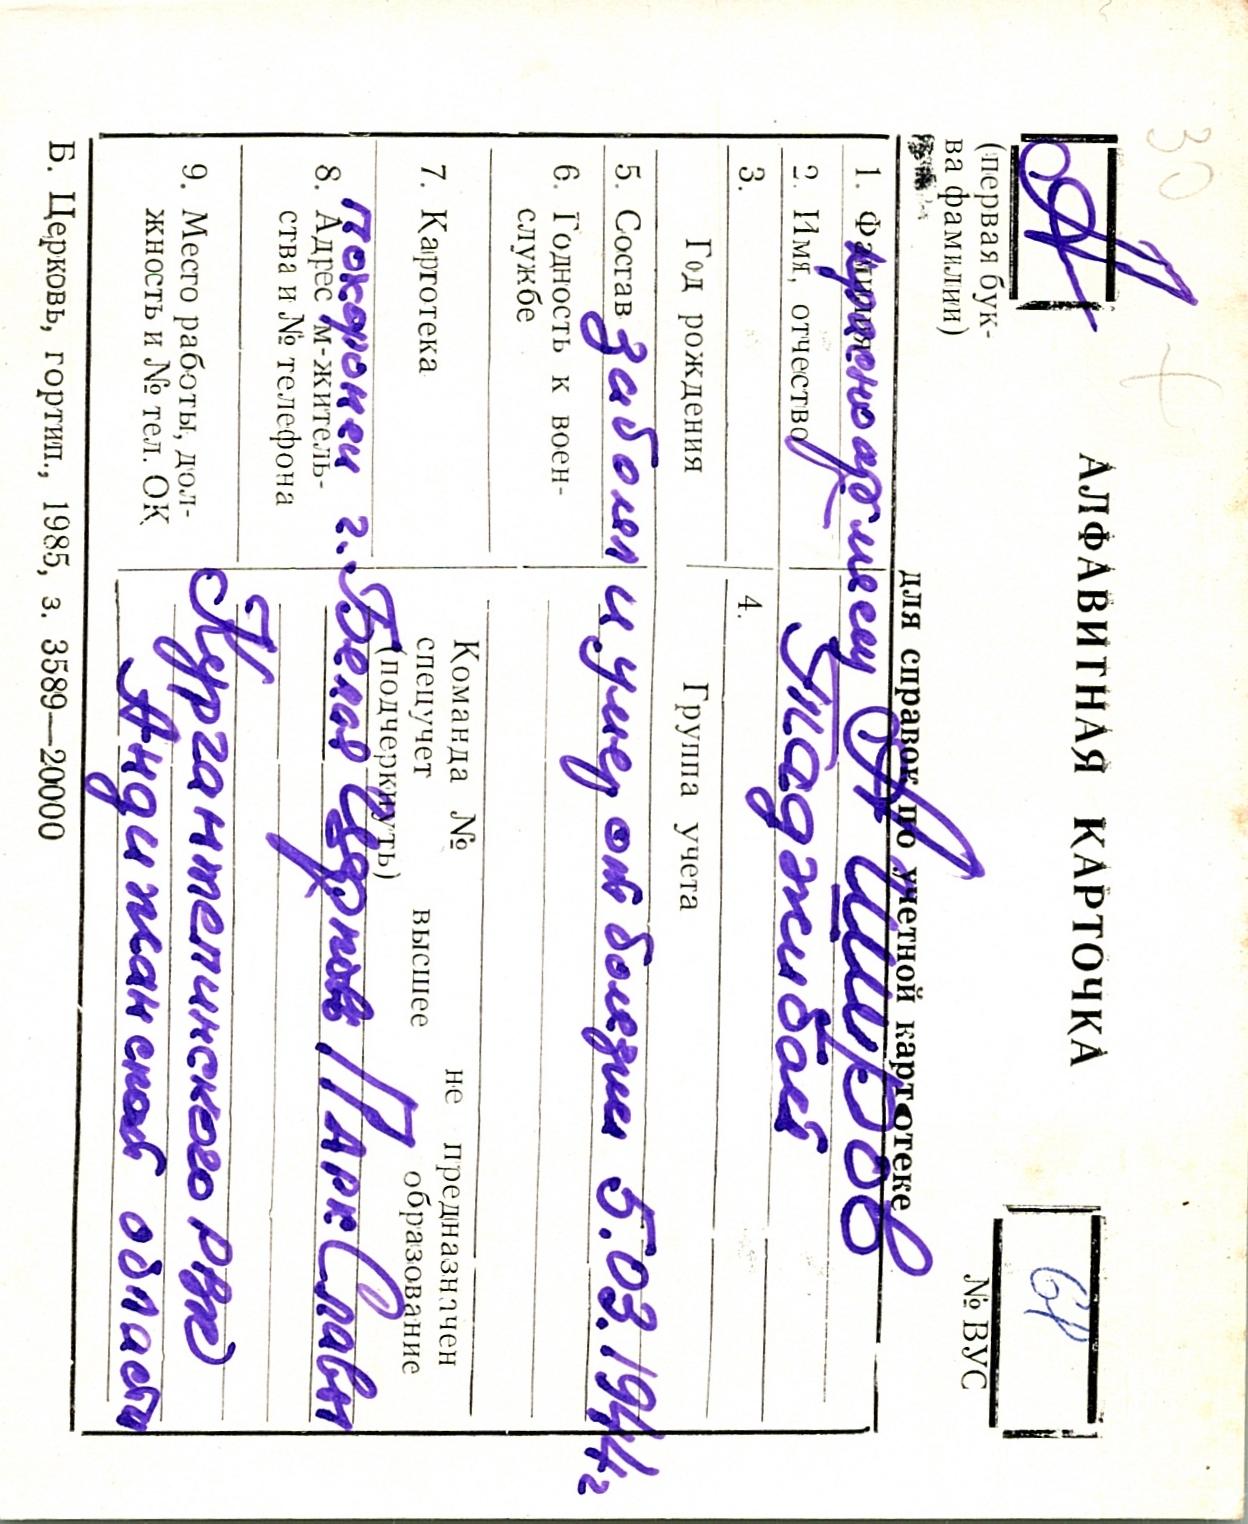 30 +
А
(первая бук-
ва фамилии)
АЛФАВИТНАЯ КАРТОЧКА
для справок по учетной картотеке
№ ВУС
1. Фамилия
красноармеец Аширов
2. Имя, отчество
Таджибай
3.
Год рождения
4.
Группа учета
5. Состав
заболел и умер от болезни 5.03.1944 г
6. Годность к воен-
службе
7. Картотека
Команда № не предназначен
спецучет высшее образование
(подчеркнуть)
похоронен г. Белая Церковь Парк Славы
8. Адрес м-житель-
ства и № телефона
9. Место работы, дол-
жность и № тел. ОК
Кургантепинского РВК
Андижанской области
Б. Церковь, гортип., 1985, з. 3589—20000